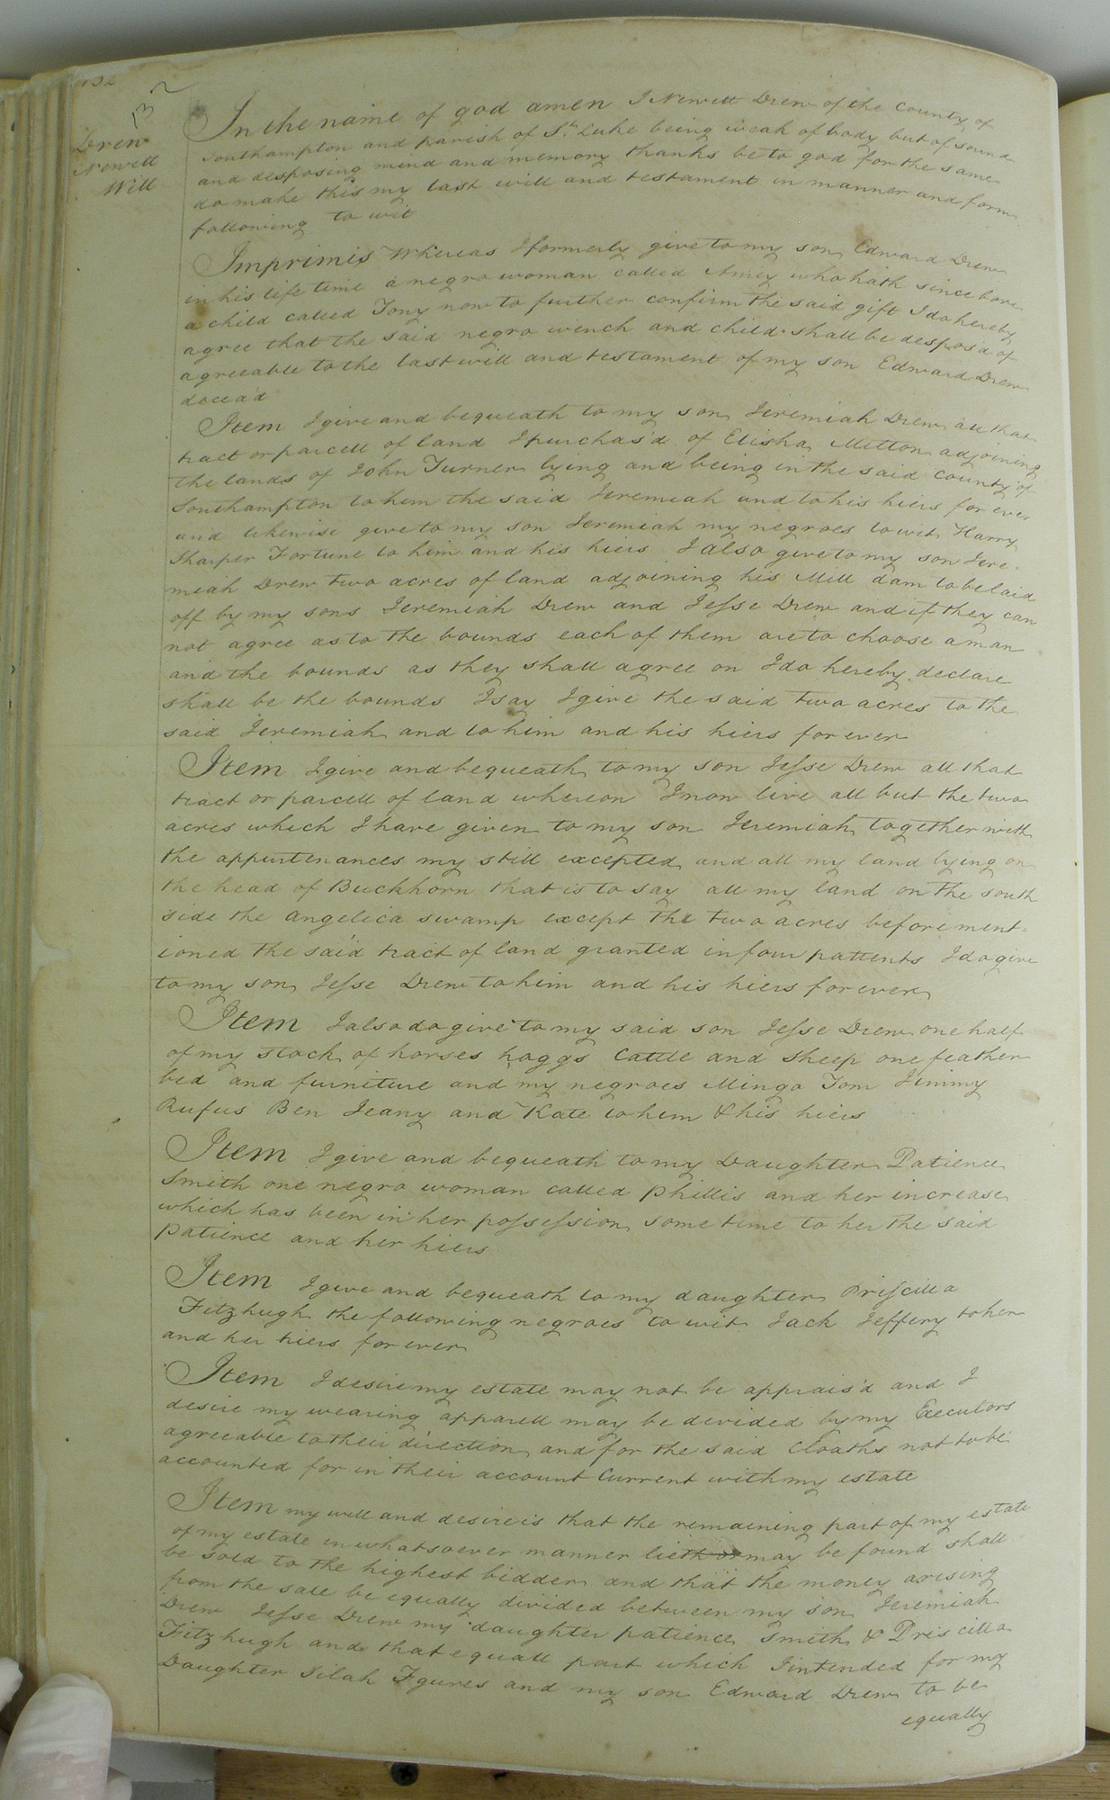 132
Drew
Newell
Will
In the name of god amen I Newett Drew of the County of
Southampton and parish of St. Luke being weak of body but of sound
and desposing mind and memory thanks be to god for the same
do make this my last will and testament in manner and form
following to wit
Imprimis Whereas I formerly give to my son Edward Drew
in his life time a negro woman called Amey who hath since bore
a child called Tony now to further confirm the said gift I do hereby
agree that the said negro wench and child shall be despos'd of
agreeable to the last will and testament of my son Edward Drew
decea'd
Item I give and bequeath to my son Jeremiah Drew all that
tract or parcell of land I purchas'd of Elisha Mitton adjoining
the lands of John Turner lying and being in the said County of
Southampton to him the said Jeremiah and to his hiers for ever
and likewise give to my son Jeremiah my negroes to wit Harry
Sharper Fortune to him and his hiers I also give to my son Jere-
miah Drew two acres of land adjoining his Mill dam to be laid
off by my sons Jeremiah Drew and Jesse Drew and if they can
not agree as to the bounds each of them are to choose a man
and the bounds as they shall agree on I do hereby declare
shall be the bounds I say I give the said two acres to the
said Jeremiah and to him and his hiers for ever
Item I give and bequeath to my son Jesse Drew all that
tract or parcell of land whereon I now live all but the two
acres which I have given to my son Jeremiah together with
the appurtenances my still excepted and all my land lying on
the head of Buckhorn that is to say all my land on the south
side the angelica swamp except the two acres before ment-
ioned the said tract of land granted in four pattents I do give
to my son Jesse Drew to him and his hiers for ever
Item I also do give to my said son Jesse Drew one half
of my stock of horses hoggs Cattle and Sheep one feather
bed and furniture and my negroes Mingo Tom Jimmy
Rufus Ben Jeany and Kate to him & his hiers
Item I give and bequeath to my Daughter Patience
Smith one negro woman called Phillis and her increase
which has been in her possession some time to her the said
Patience and her hiers
Item I give and bequeath to my daughter Priscilla
Fitzhugh the following negroes to wit Jack Jeffery to her
and her hiers for ever
Item I desire my estate may not be apprais'd and I
desire my wearing apparell may be devided by my Executors
agreeable to their direction and for the said Cloaths not to be
accounted for in their account Current with my estate
Item my will and desire is that the remaining part of my estate
of my estate in whatsoever manner lieth or may be found shall
be sold to the highest bidder and that the money arising
from the sale be equally divided between my son Jeremiah
Drew Jesse Drew my daughter patience Smith & Priscilla
Fitzhugh and that equall part which I intended for my
Daughter Silah Fgures and my son Edward Drew to be
equally